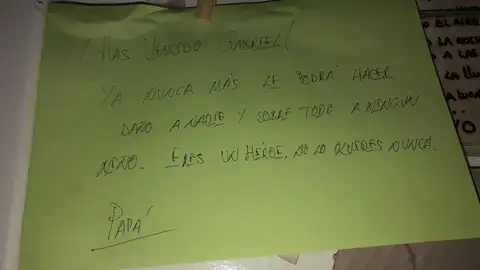 ¡HAS VENCIDO GABRIEL!
YA NUNCA MÁS LE PODRÁ HACER
DAÑO A NADIE Y SOBRE TODO A NINGÚN
NIÑO. ERES UN HÉROE, NO LO OLVIDES NUNCA.
PAPÁ
EL AIRE
LA NOCHE
A LAS